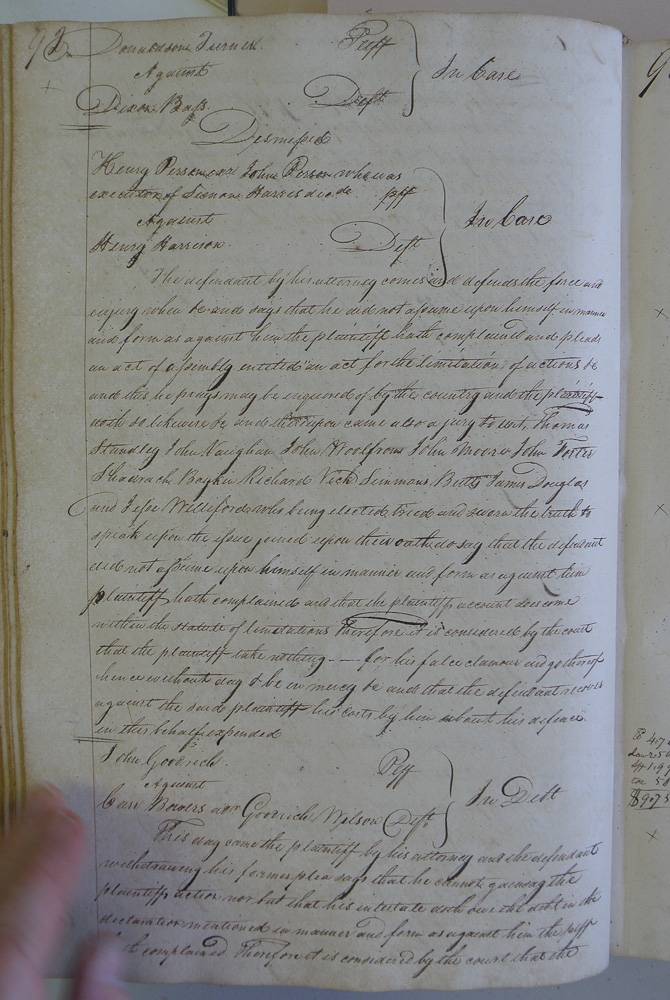 92 Donaldson Turner Ptff
Against In Case
Dixon Bass Deft
Dismissed
Henry Person and John Person who was
executor of Simon Harris decd. ptff
Against In Case
Henry Harrison Deft
The defendant by his attorney comes and defends the force and
injury when &c and says that he did not assume upon himself in manner
and form as against him the plaintiff hath complained and pleads
an act of assembly entitled "an act for the limitation of actions &c
and this he prays may be enquired of by the country and the plaintiff
doth so likewise &c and thereupon came also a jury to wit, Thomas
Standley John Vaughan John Woolfrons John Moore John Foster
Shadrach Boykin Richard Vick Simmons Butts James Douglas
and Jesse Williford who being elected tried and sworn the truth to
speak upon the issue joined upon their oath do say that the defendant
did not assume upon himself in manner and form as against him
plaintiff hath complained and that the plaintiffs account does come
within the statute of limitations Therefore it is considered by the court
that the plaintiff take nothing — — for his false clamour and go thereof
hence without day & be in mercy &c and that the defendant recover
against the said plaintiff his costs by him about his defence
in this behalf expended
John Goodrich Ptff
Against In Debt
Carr Bowers admr Goodrich Wilson Deft
This day came the plaintiff by his attorney and the defendant
withdrawing his former plea says that he cannot gainsay the
plaintiffs action nor but that his intestate doth owe the debt in the
declaration mentioned in manner and form as against him the ptff
complained Therefore it is considered by the court that the